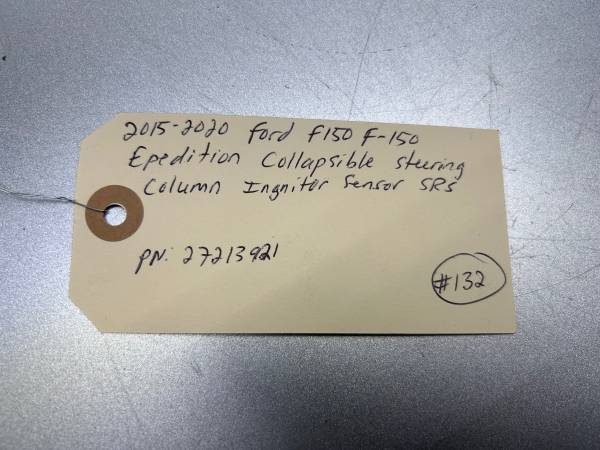 2015-2020 Ford F150 F-150
Epedition Collapsible Steering
Column Ingnitor Sensor SRS
PN: 27213921
#132